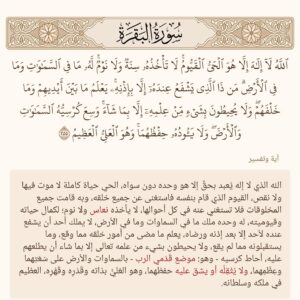 سُورَةُ البَقَرَةِ
اللَّهُ لَآ إِلَٰهَ إِلَّا هُوَ الْحَيُّ الْقَيُّومُ ۚ لَا تَأْخُذُهُۥ سِنَةٌ وَلَا نَوْمٌ ۚ لَّهُۥ مَا فِى السَّمَٰوَٰتِ وَمَا
فِى الْأَرْضِ ۗ مَن ذَا الَّذِى يَشْفَعُ عِندَهُۥٓ إِلَّا بِإِذْنِهِۦ ۚ يَعْلَمُ مَا بَيْنَ أَيْدِيهِمْ وَمَا
خَلْفَهُمْ ۖ وَلَا يُحِيطُونَ بِشَىْءٍ مِّنْ عِلْمِهِۦٓ إِلَّا بِمَا شَآءَ ۚ وَسِعَ كُرْسِيُّهُ السَّمَٰوَٰتِ
وَالْأَرْضَ ۖ وَلَا يَـُٔودُهُۥ حِفْظُهُمَا ۚ وَهُوَ الْعَلِىُّ الْعَظِيمُ ٢٥٥
آية وتفسير
الله الذي لا إله يُعبد بحقٍّ إلا هو وحده دون سواه، الحي حياة كاملة لا موت فيها
ولا نقص، القيوم الذي قام بنفسه فاستغنى عن جميع خلقه، وبه قامت جميع
المخلوقات فلا تستغني عنه في كل أحوالها، لا يأخذه نعاس ولا نوم؛ لكمال حياته
وقيوميته، له وحده ملك ما في السماوات وما في الأرض، لا يملك أحد أن يشفع
عنده لأحد إلا بعد إذنه ورضاه، يعلم ما مضى من أمور خلقه مما وقع، وما
يستقبلونه مما لم يقع، ولا يحيطون بشيء من علمه تعالى إلا بما شاء أن يطلعهم
عليه، أحاط كرسيه - وهو: موضع قدمي الرب - بالسماوات والأرض على سَعَتِهما
وعِظَمِهما، ولا يُثقِله أو يشق عليه حفظهما، وهو العَليّ بذاته وقدره وقهره، العظيم
في ملكه وسلطانه.